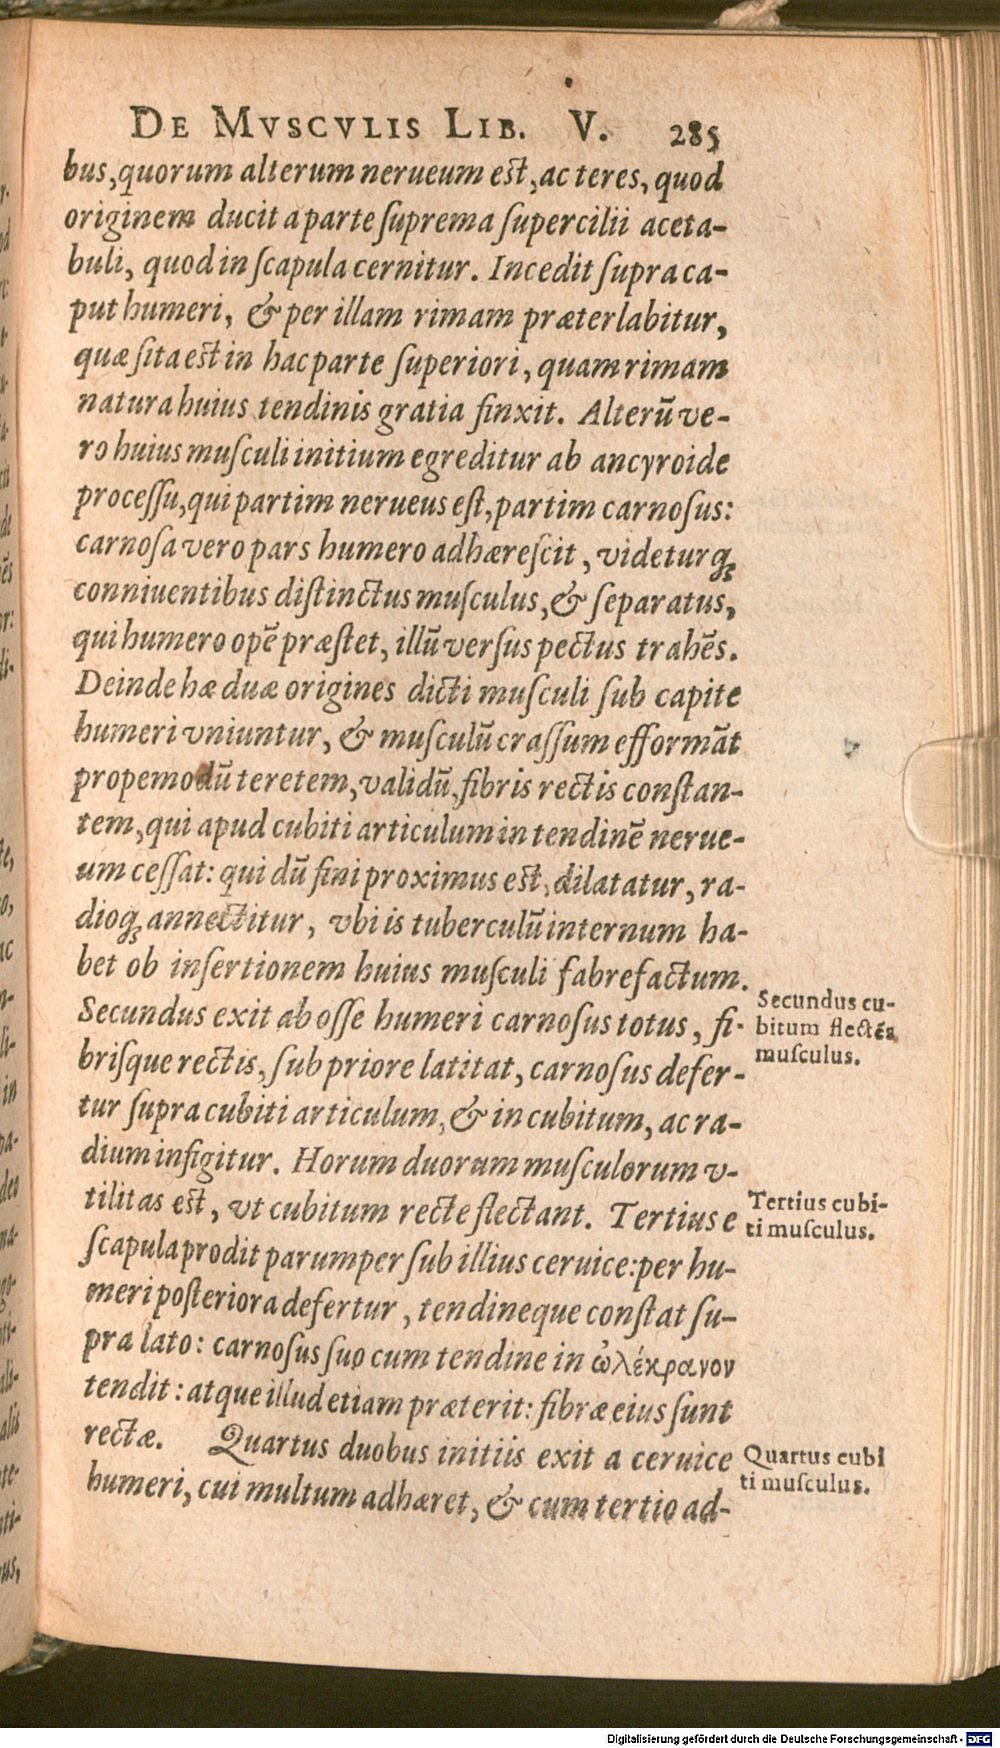 DE MVSCVLIS LIB. V. 285
bus, quorum alterum nerueum est, ac teres, quod
originem ducit a parte suprema supercilii aceta-
buli, quod in scapula cernitur. Incedit supra ca-
put humeri, & per illam rimam præterlabitur,
quæ sita est in hac parte superiori, quam rimam
natura huius tendinis gratia finxit. Alterũ ve-
ro huius musculi initium egreditur ab ancyroide
processu, qui partim nerueus est, partim carnosus:
carnosa vero pars humero adhærescit, videturq;
conniuentibus distinctus musculus, & separatus,
qui humero opẽ præstet, illũ versus pectus trahẽs.
Deinde hæ duæ origines dicti musculi sub capite
humeri vniuntur, & musculũ crassum efformãt
propemodũ teretem, validũ, fibris rectis constan-
tem, qui apud cubiti articulum in tendinẽ nerue-
um cessat: qui dũ fini proximus est, dilatatur, ra-
dioq; annectitur, vbi is tuberculũ internum ha-
bet ob insertionem huius musculi fabrefactum.
Secundus exit ab osse humeri carnosus totus, fi-
brisque rectis, sub priore latitat, carnosus defer-
tur supra cubiti articulum, & in cubitum, ac ra-
dium infigitur. Horum duorum musculorum v-
tilitas est, vt cubitum recte flectant. Tertius e
scapula prodit parumper sub illius ceruice: per hu-
meri posteriora defertur, tendineque constat su-
pra lato: carnosus suo cum tendine in ὠλέκρανον
tendit: atque illud etiam præterit: fibræ eius sunt
rectæ. Quartus duobus initiis exit a ceruice
humeri, cui multum adhæret, & cum tertio ad-
Secundus cu-
bitum flectẽs
musculus.
Tertius cubi-
ti musculus.
Quartus cubi
ti musculus.
Digitalisierung gefördert durch die Deutsche Forschungsgemeinschaft - DFG